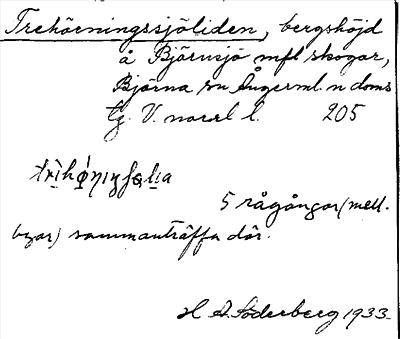 Trehörningssjöliden, bergshöjd
å Björnsjö mfl skogar,
Björna sn Ångerml. n doms
tg. V. norrl l. 205
5 rågångar (mell.
byar) sammanträffa där.
H A. Söderberg 1933.